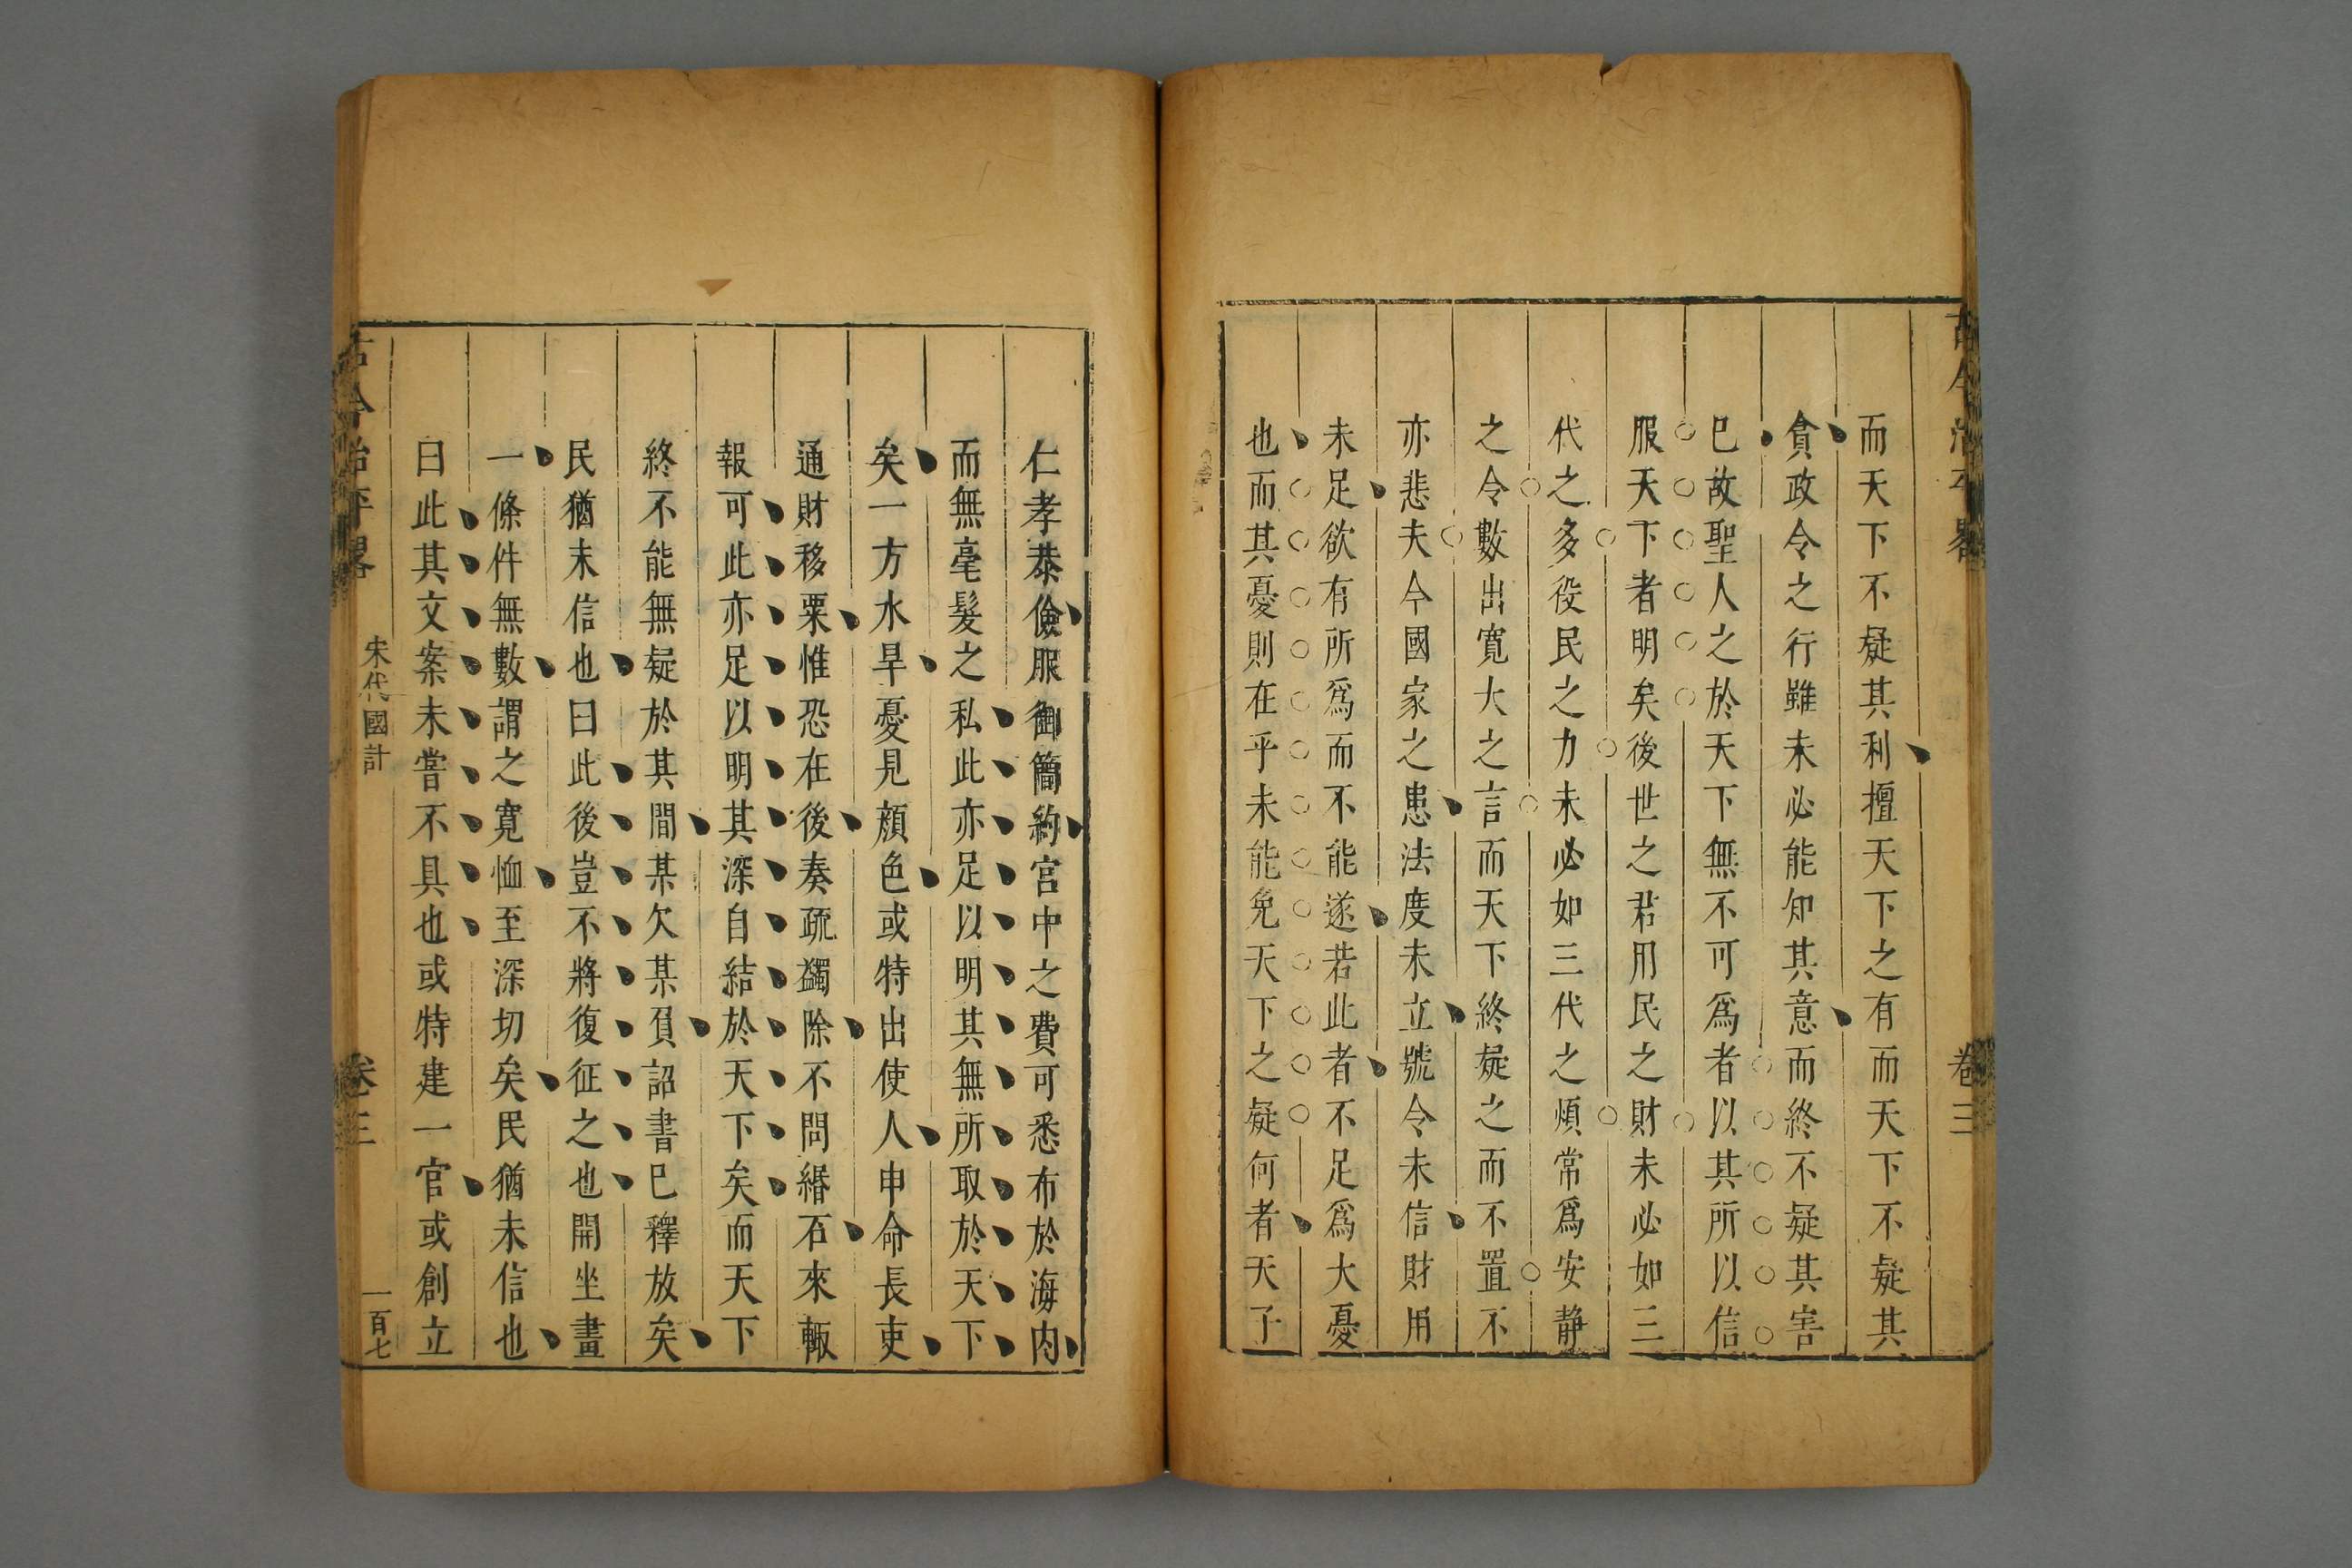 古今治平畧
卷三
而天下不疑其利擅天下之有而天下不疑其
貪政令之行雖未必能知其意而終不疑其害
巳故聖人之於天下無不可爲者以其所以信
服天下者明矣後世之君用民之財未必如三
代之多役民之力未必如三代之煩常爲安靜
之令數出寬大之言而天下終疑之而不置不
亦悲夫今國家之患法度未立號令未信財用
未足欲有所爲而不能遂若此者不足爲大憂
也而其憂則在乎未能免天下之疑何者天子
仁孝恭儉服御簡約宮中之費可悉布於海内
而無毫髮之私此亦足以明其無所取於天下
矣一方水旱憂見顏色或特出使人申命長吏
通財移粟惟恐在後奏疏蠲除不問緡石來輙
報可此亦足以明其深自結於天下矣而天下
終不能無疑於其間某欠某負詔書巳釋放矣
民猶未信也曰此後豈不將復征之也開坐畫
一條件無數謂之寬恤至深切矣民猶未信也
曰此其文案未嘗不具也或特建一官或創立
古今治平畧
宋代國計
卷三
一百七